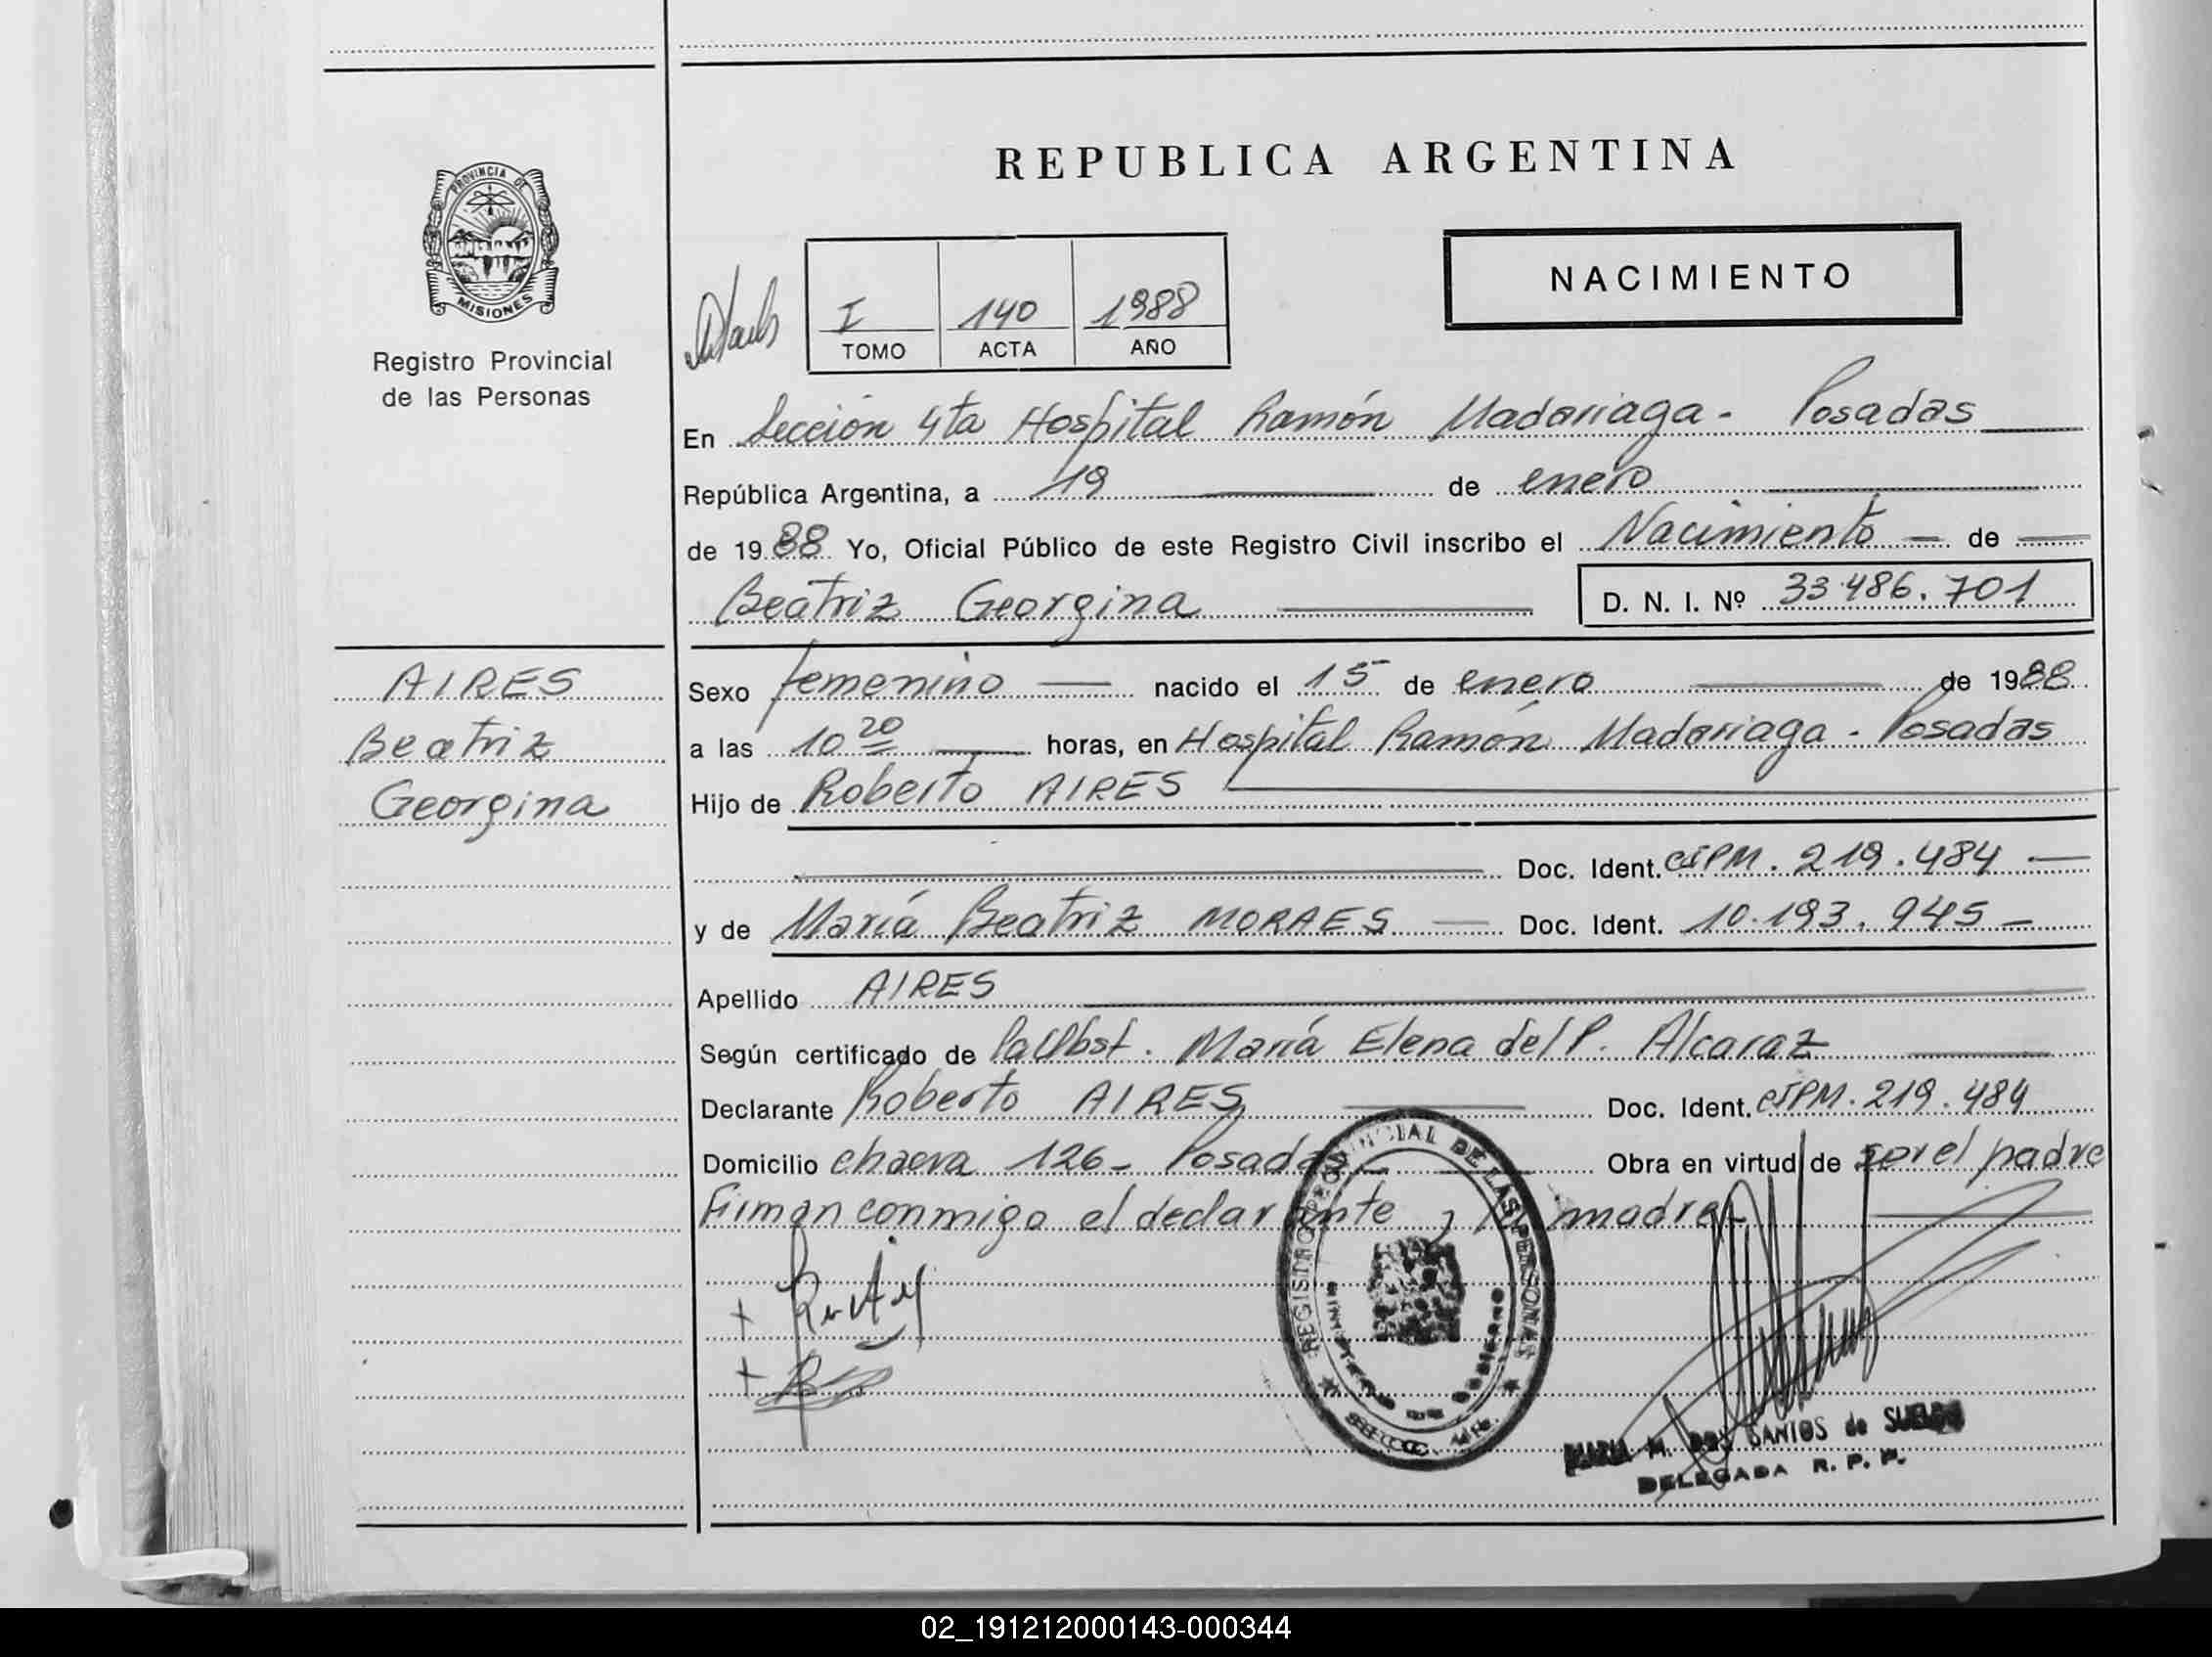 REPUBLICA ARGENTINA
PROVINCIA DE
MISIONES
Registro Provincial
de las Personas
NACIMIENTO
I 140 1988
TOMO ACTA AÑO
En Sección 4ta Hospital Ramón Madariaga - Posadas
República Argentina, a 19 de enero
de 1988 Yo, Oficial Público de este Registro Civil inscribo el Nacimiento de
Beatriz Georgina D. N. I. Nº 33.486.701
AIRES
Beatriz
Georgina
Sexo femenino nacido el 15 de enero de 1988
a las 10 20 horas, en Hospital Ramón Madariaga - Posadas
Hijo de Roberto AIRES
Doc. Ident. CIPM. 219.484
y de María Beatriz MORAES Doc. Ident. 10.193.945
Apellido AIRES
Según certificado de la Obst. María Elena del P. Alcaraz
Declarante Roberto AIRES Doc. Ident. CIPM. 219.484
Domicilio chacra 126 - Posadas Obra en virtud de ser el padre
Firman conmigo el declarante y la madre
REGISTRO PROVINCIAL DE LAS PERSONAS
MARIA M. DOS SANTOS de SUELDO
DELEGADA R. P. P.
02_191212000143-000344